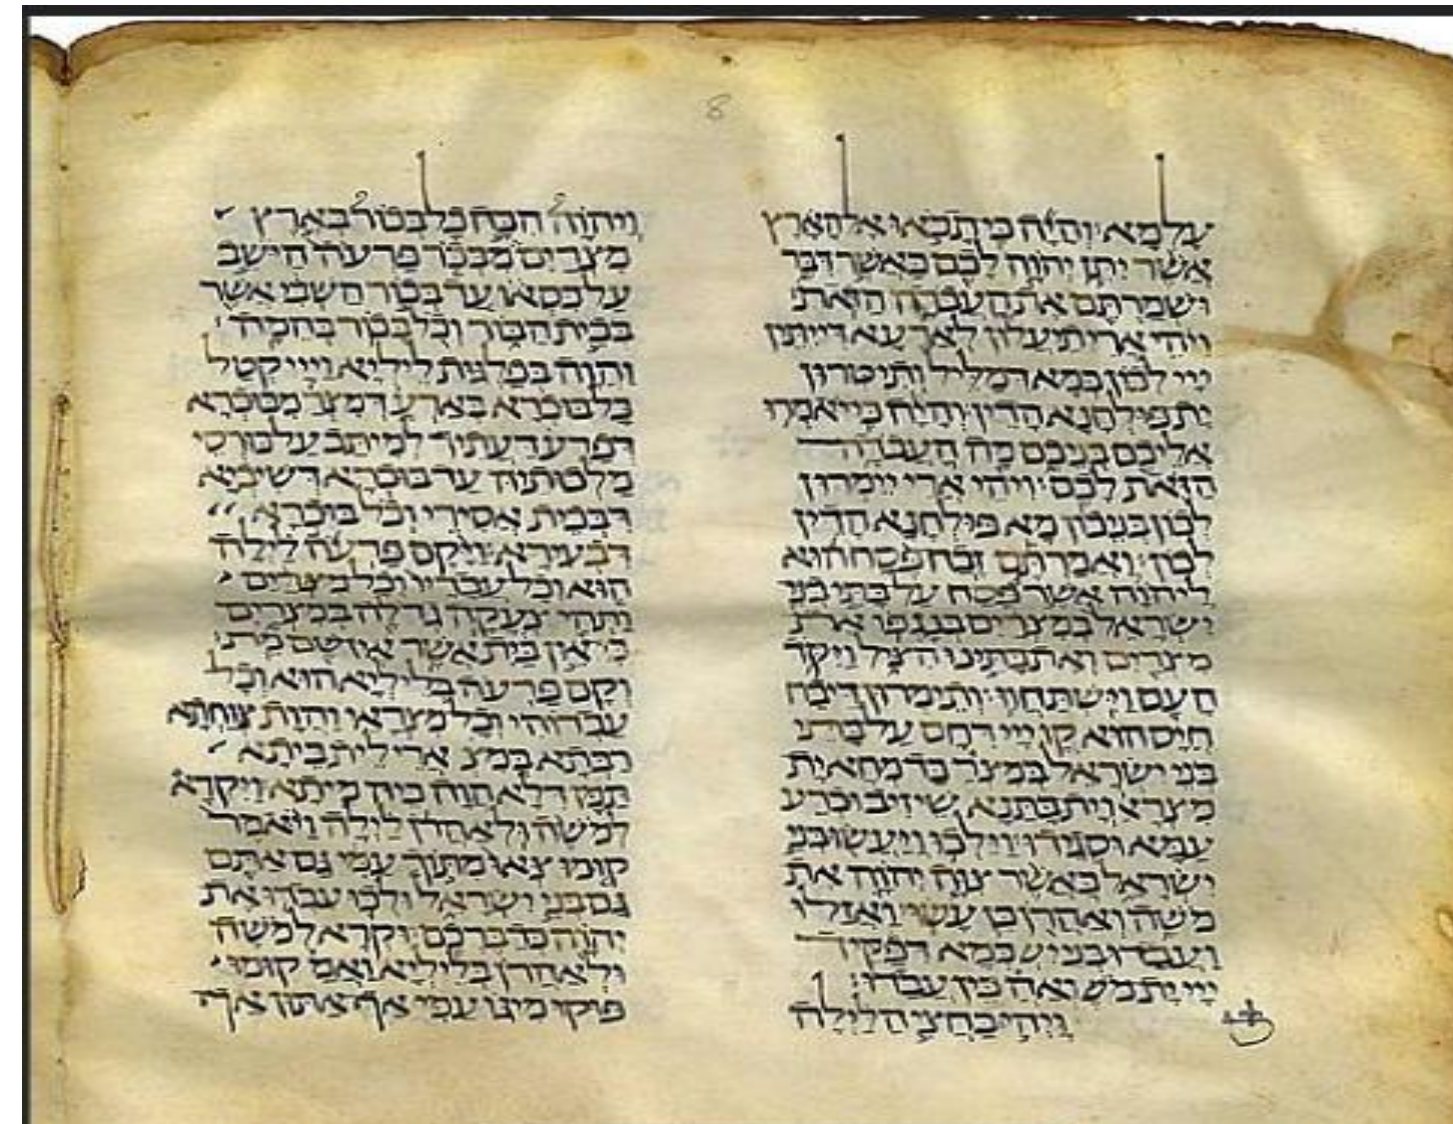 8
על מא והיה כי תבאו אל הארץ
אשר יתן יהוה לכם כאשר דבר
ושמרתם את העבדה הזאת
ויהי ארי תיעלון לארעא דייתין
ייי לכון כמא דמליל ותיטרון
ית פולחנא הדין והיה כי יאמרו
אליכם בניכם מה העבדה
הזאת לכם ויהי ארי יימרון
לכון בניכון מא פולחנא הדין
לכון ואמרתם זבח פסח הוא
ליהוה אשר פסח על בתי בני
ישראל במצרים בנגפו את
מצרים ואת בתינו הציל ויקד
העם וישתחוו ותימרון דיבח
חייס הוא קד ייי דחס על בתי
בני ישראל במצר כד מחא ית
מצראי וית בתנא שיזיב וכרע
עמא וסגידו וילכו ויעשו בני
ישראל כאשר צוה יהוה את
משה ואהרן כן עשו ואזלו
ועבדו בני יש כמא דפקיד
ייי ית מש ואה כין עבדו׃
ויהי בחצי הלילה
ויהוה הכה כל בכור בארץ
מצרים מבכר פרעה הישב
על כסאו עד בכור השבי אשר
בבית הבור וכל בכור בהמה
והוה בפלגות ליליא וייי קטל
כל בוכרא בארע דמצר מבוכרא
דפרעה דעתיד למיתב על כורסי
מלכותיה עד בוכרא דשיביא
דבבית אסירי וכל בוכרא
דבעירא ויקם פרעה לילה
הוא וכל עבדיו וכל מצרים
ותהי צעקה גדלה במצרים
כי אין בית אשר אין שם מת
וקם פרעה בליליא הוא וכל
עבדוהי וכל מצראי והות צוחתא
רבתא במצ ארי לית ביתא
תמן דלא הוה ביה מיתא ויקרא
למשה ולאהרן לילה ויאמר
קומו צאו מתוך עמי גם אתם
גם בני ישראל ולכו עבדו את
יהוה כדברכם וקרא למשה
ולאהרן בליליא ואמ קומו
פוקו מיגו עמי אף אתון אף